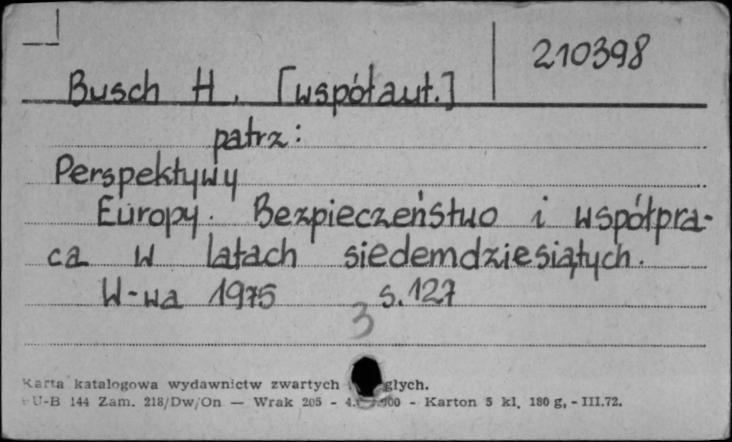 210398
Busch H. [współaut.]
patrz:
Perspektywy
Europy. Bezpieczeństwo i współpra-
ca w latach siedemdziesiątych.
W-wa 1975 s. 127
3
Karta katalogowa wydawnictw zwartych
U-B 144 Zam. 218/Dw/On — Wrak 205 - - Karton 5 kl. 180 g, - III.72.